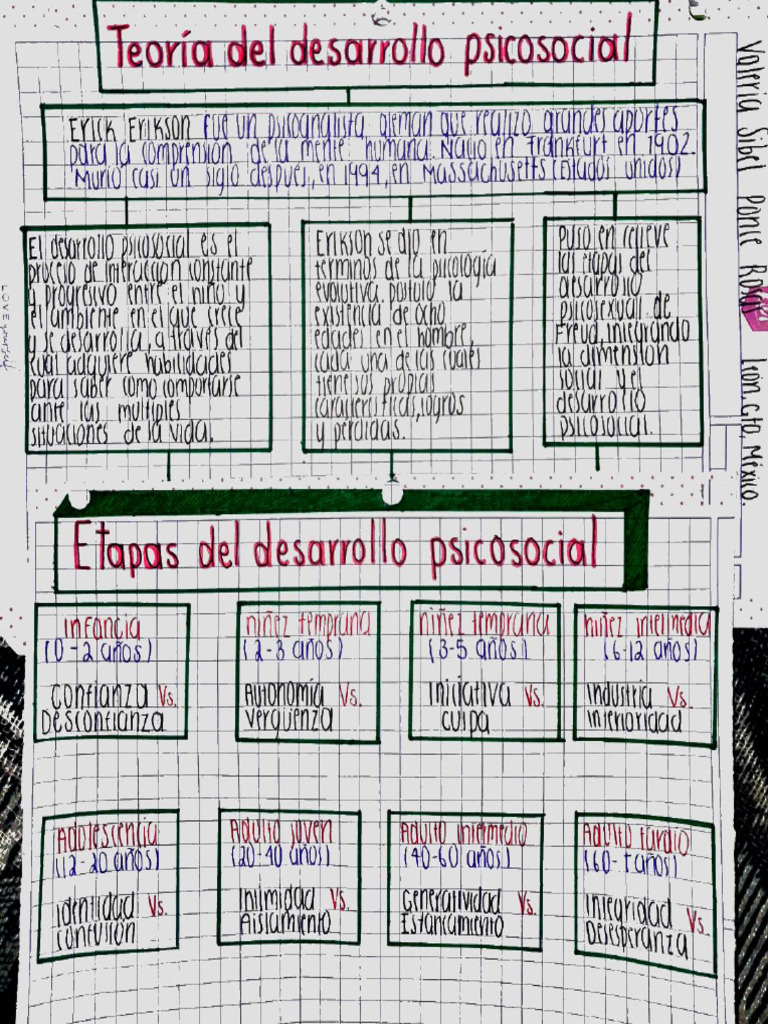 Teoría del desarrollo psicosocial
Erick Erikson fue un psicoanalista aleman que realizo grandes aportes
para la comprensión de la mente humana. Nacio en Frankfurt en 1902.
Murio casi un siglo despues, en 1994, en Massachusetts (Estados unidos)
El desarrollo psicosocial es el
proceso de interaccion constante
y progresivo entre el niño y
el ambiente en el que crece
y se desarrolla, a través del
cual adquiere habilidades
para saber como comportarse
ante las multiples
situaciones de la vida.
Erikson se dio en
terminos de la psicología
evolutiva. postuló la
existencia de ocho
edades en el hombre,
cada una de las cuales
tiene sus propias
características, logros
y perdidas.
Puso en relieve
las etapas del
desarrollo
psicosexual de
Freud, integrando
la dimension
social y el
desarrollo
psicosocial.
Valeria Sibel Ponce Rosas León, Gto, México.
LOVE yourself
Etapas del desarrollo psicosocial
infancia
(0-2 años)
Confianza Vs.
Desconfianza
niñez temprana
(2-3 años)
Autonomía Vs.
Vergüenza
niñez temprana
(3-5 años)
Iniciativa Vs.
culpa
niñez intermedia
(6-12 años)
Industria Vs.
inferioridad
Adolescencia
(12-20 años)
identidad Vs.
confusion
Adulto joven
(20-40 años)
Intimidad Vs.
Aislamiento
Adulto intermedio
(40-60 años)
Generatividad Vs.
Estancamiento
Adulto tardio
(60-+años)
Integridad Vs.
Desesperanza